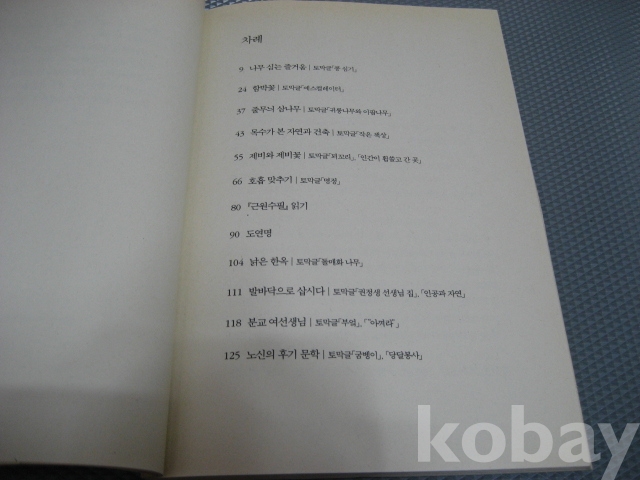 차례
9 나무 심는 즐거움 | 토막글「콩 심기」
24 함박꽃 | 토막글「에스컬레이터」
37 줄무늬 삼나무 | 토막글「귀룽나무와 이팝나무」
43 목수가 본 자연과 건축 | 토막글「작은 책상」
55 제비와 제비꽃 | 토막글「꾀꼬리」, 「인간이 휩쓸고 간 곳」
66 호흡 맞추기 | 토막글「명성」
80 『근원수필』 읽기
90 도연명
104 낡은 한옥 | 토막글「돌매화 나무」
111 발바닥으로 삽시다 | 토막글「권정생 선생님 집」, 「인공과 자연」
118 분교 여선생님 | 토막글「부엌」, 「"아껴라"」
125 노신의 후기 문학 | 토막글「굼벵이」, 「당달봉사」
kobay